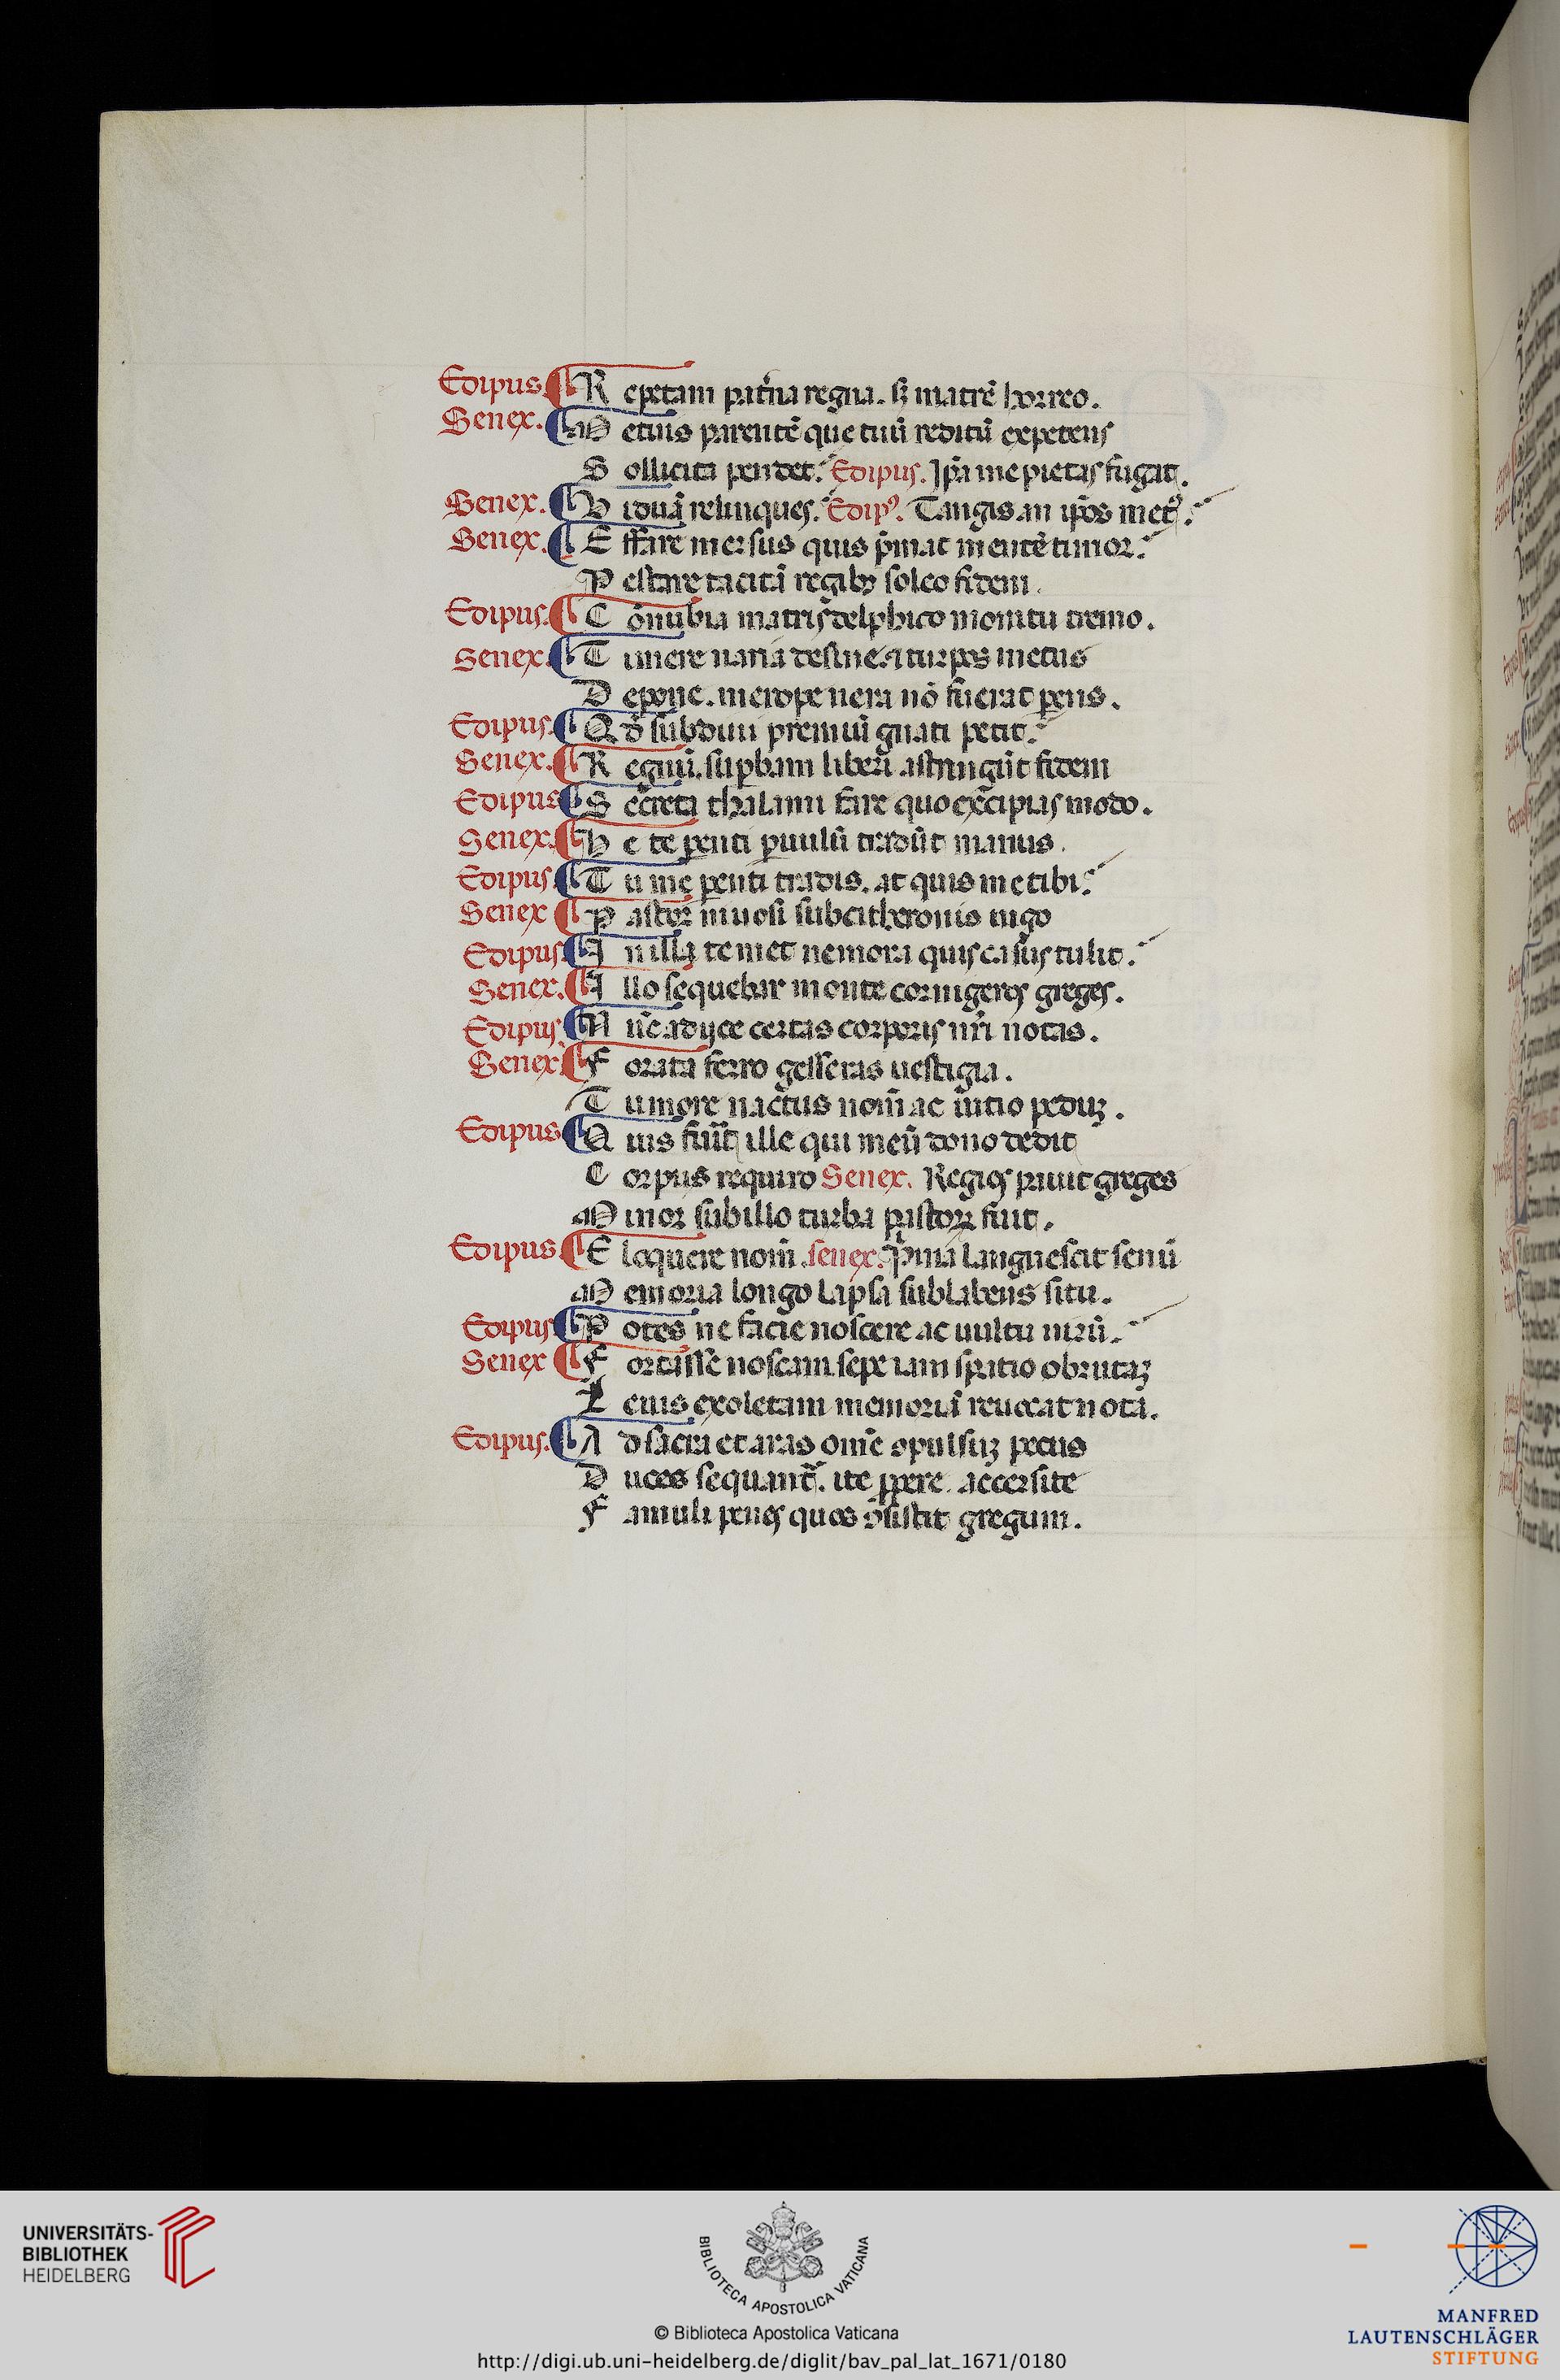 Edipus. R epetam pat'na regna. sꝫ matrē horreo.
Senex. M etuis parentē que tuū reditū expetens
S ollicita pendet. Edipus. Ip̄a me pietas fugat.
Senex. V iduā relinques. Edip⁹. Tangis an ip̄os met⁹.
Senex. E ffare mersus quis p̄mat mentē timor.
P estare tacitā regibꝫ soleo fidem.
Edipus. C ōnubia matris delphico monitu tremo.
Senex. T imere uana desine. ⁊ turpes metus
D epone. merope uera nō fuerat parens.
Edipus. Q d̄ subditiui premiū gnati petit.
Senex. R egnū. sup̄bam liberi astringūt fidem
Edipus S ecreta thalami fare quo excipias modo.
Senex. H e te parenti paruulū tradūt manus.
Edipus. T u me parenti tradis. at quis me tibi.
Senex P astor niuosi sub citheronis iugo
Edipus. I n illa temet nemora quis casus tulit.
Senex. I llo sequebar monte cornigeros greges.
Edipus N ūc adijce certas corporis nr̄i notas.
Senex. F orata ferro gesseras uestigia.
T umore nactus nom̄ ac uitio peduꝫ.
Edipus Q uis fuerit ille qui meū dono dedit
C orpus requiro Senex. Regios pauit greges
M inor sub illo turba pastorꝝ fuit.
Edipus. E loquere nom̄. senex. P̄ma languescit senū
M emoria longo lapsa sublabens situ.
Edipus P otes ne facie noscere ac uultu uirū.
Senex F ortasse noscam. sepe iam spatio obrutaꝫ
L euis exoletam memoriā reuocat nota.
Edipus. A d sacra et aras om̄e ɔpulsuꝫ pecus
D uces sequant̄. ite ꝓpere. accersite
F amuli penes quos ɔsistit gregum.
UNIVERSITÄTS-
BIBLIOTHEK
HEIDELBERG
BIBLIOTECA APOSTOLICA VATICANA
© Biblioteca Apostolica Vaticana
http://digi.ub.uni-heidelberg.de/diglit/bav_pal_lat_1671/0180
MANFRED
LAUTENSCHLÄGER
STIFTUNG